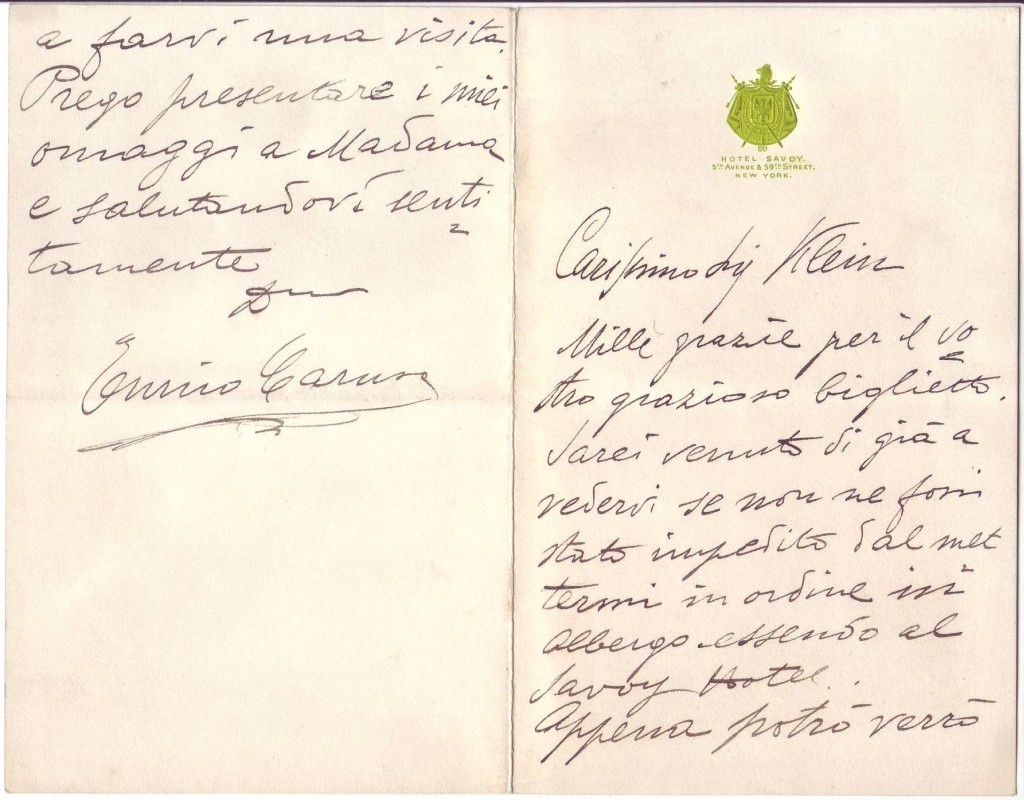 HOTEL SAVOY.
5TH AVENUE & 59TH STREET,
NEW YORK.
Carissimo Sig Klein
Mille grazie per il vo
stro grazioso biglietto.
Sarei venuto di già a
vedervi se non ne fossi
stato impedito dal met
termi in ordine in
albergo essendo al
Savoy Hotel.
Appena potrò verrò
a farvi una visita.
Prego presentare i miei
omaggi a Madama
e salutandovi senti
tamente
Enrico Caruso